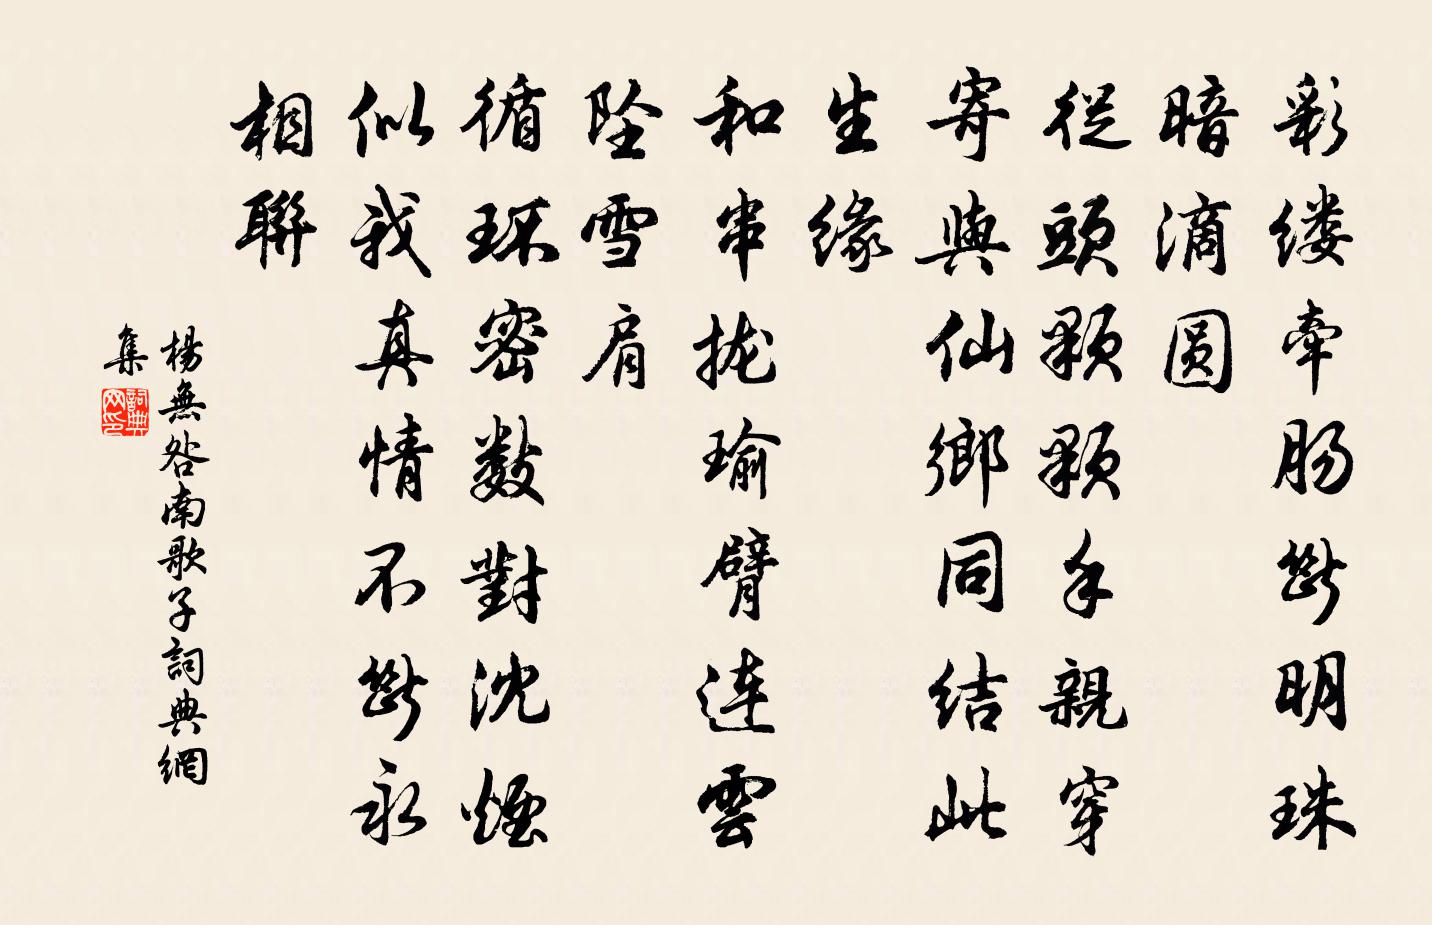 彩缕牵肠断明珠
暗滴圆
從頭顆顆手親穿
寄與仙鄉同結此
生缘
和串拢瑜臂連雲
坠雪肩
循环密數對沈煙
似我真情不断永
相聯
楊無咎南歌子詞典網
集
詞典网印